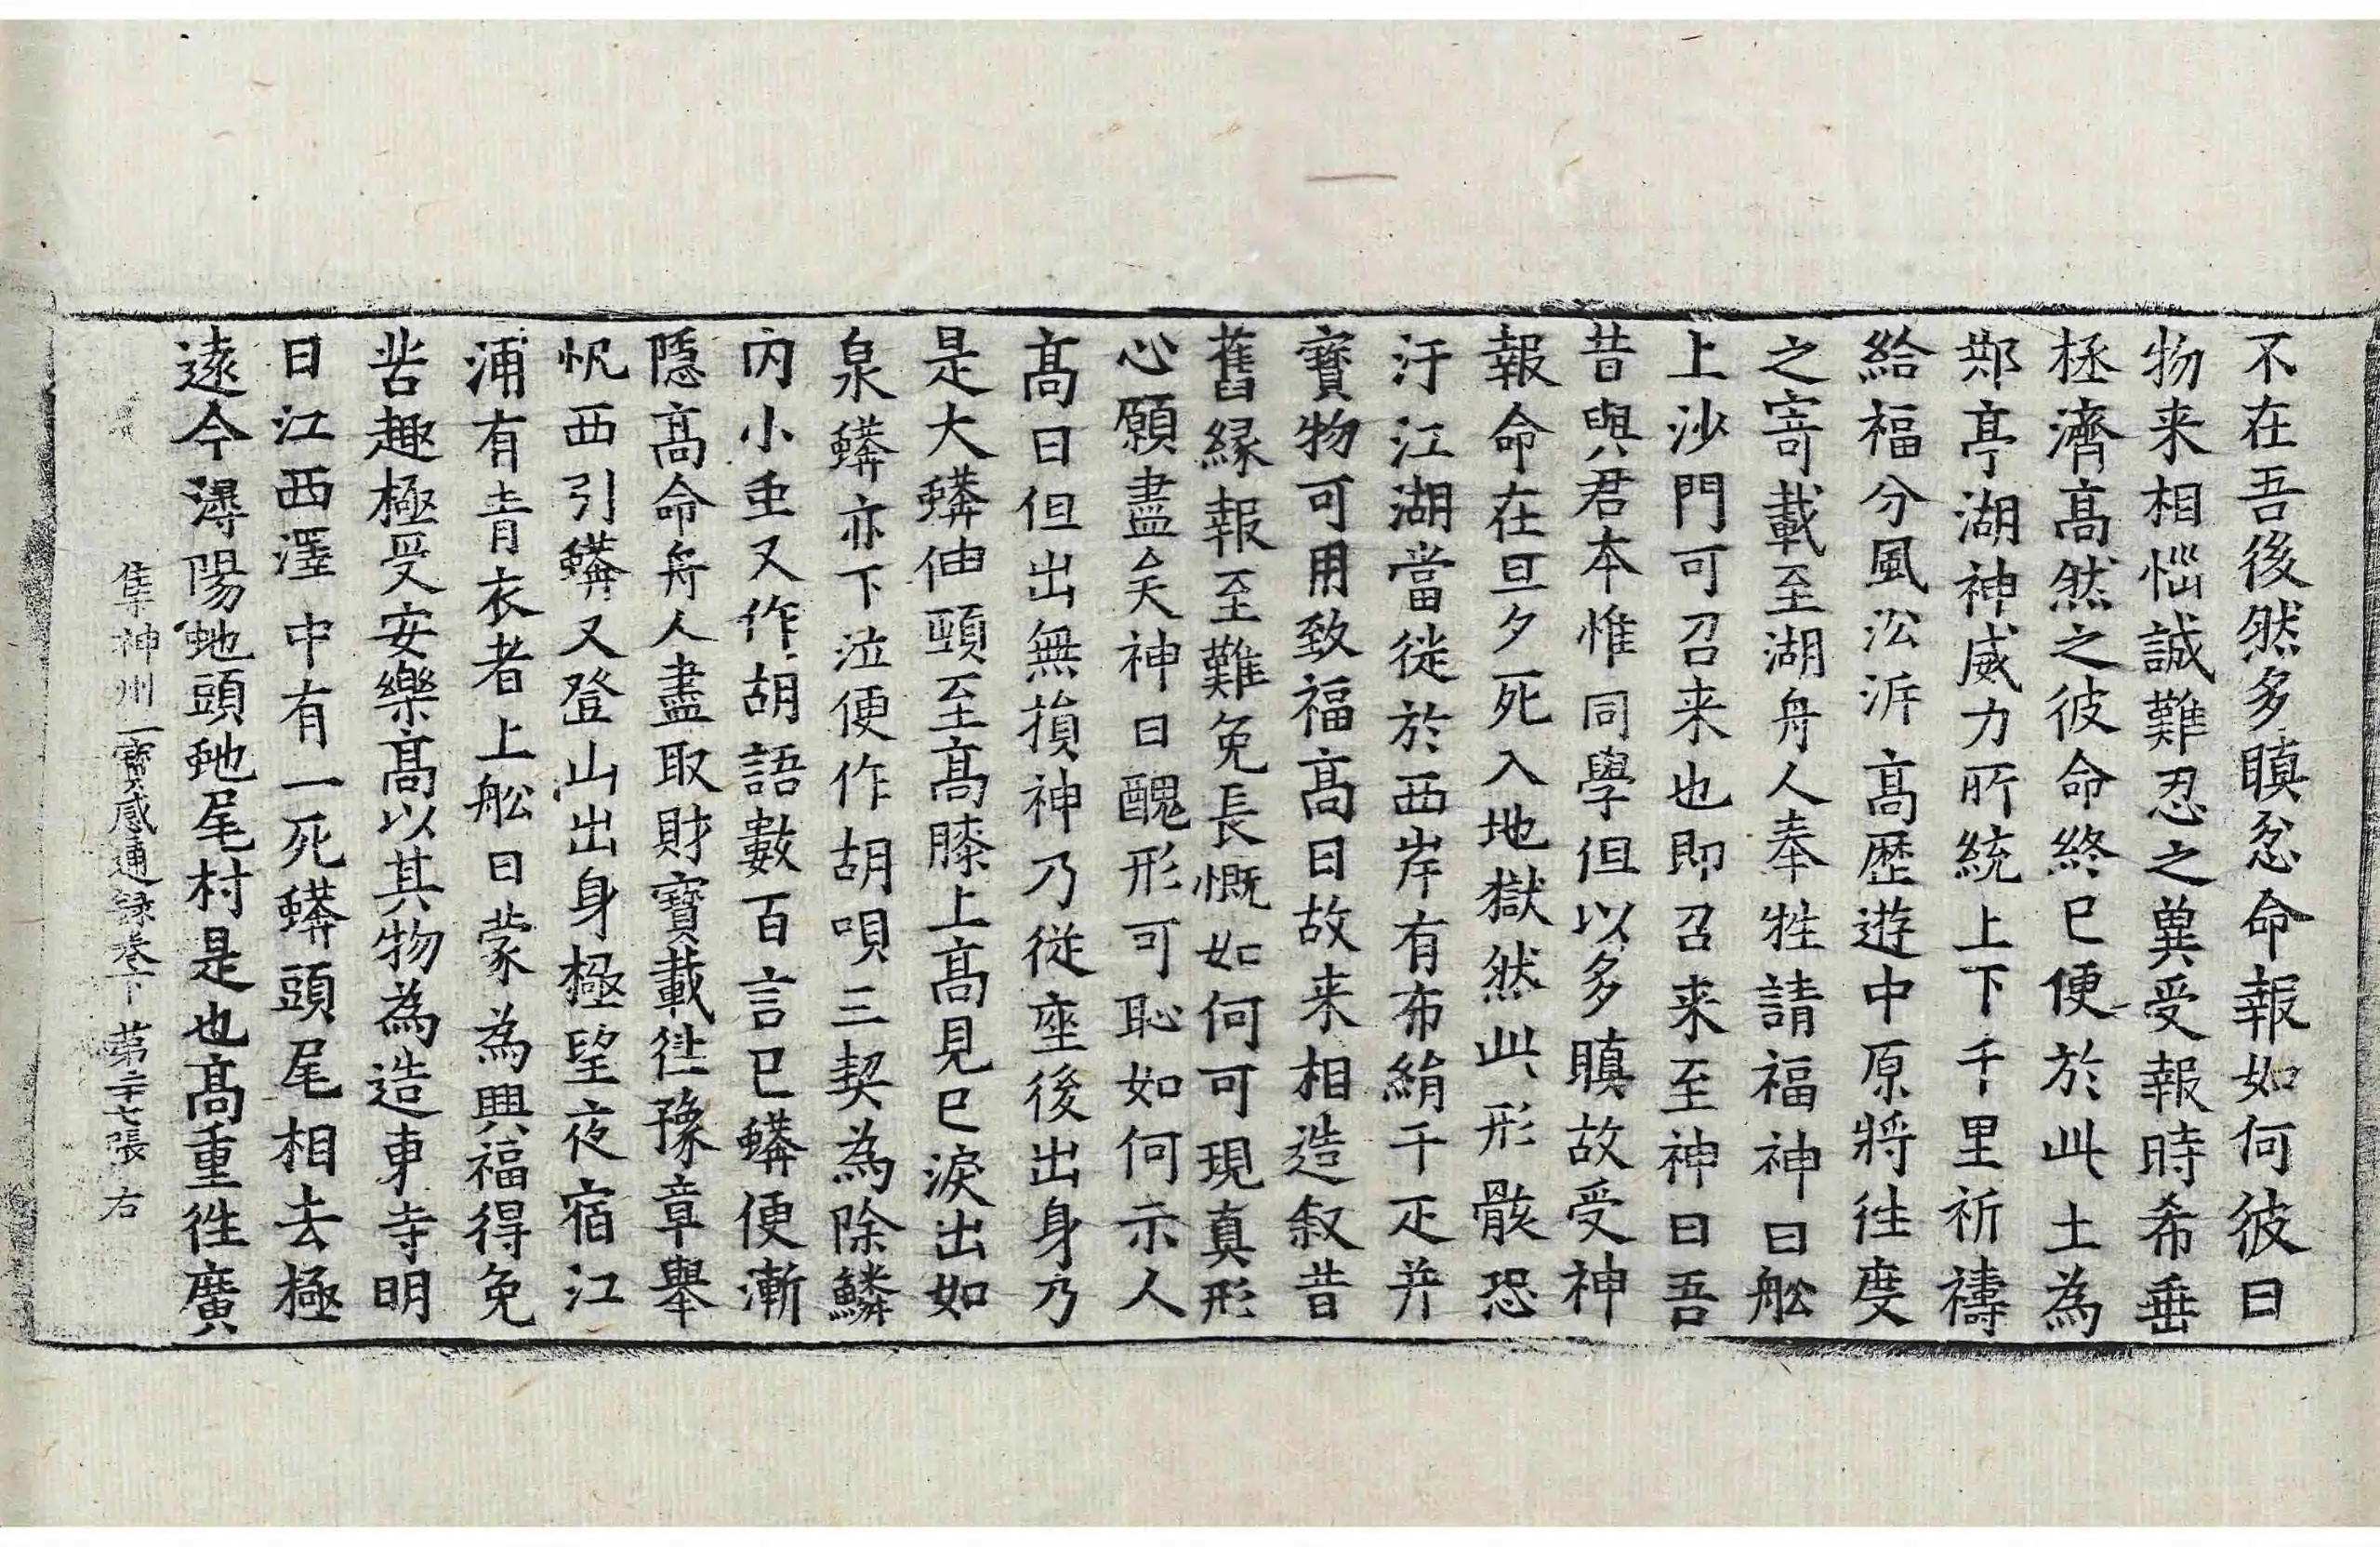 不在吾後然多瞋忿命報如何彼曰
物来相惱誠難忍之兾受報時希垂
拯濟高然之彼命終已便於此土為
䢼亭湖神威力所統上下千里祈禱
給福分風㳂泝高歷遊中原將往度
之寄載至湖舟人奉牲請福神曰舩
上沙門可召来也即召来至神曰吾
昔與君本惟同學但以多瞋故受神
報命在旦夕死入地獄然此形骸恐
汙江湖當徙於西岸有布絹千疋并
寶物可用致福高曰故来相造叙昔
舊緣報至難免長慨如何可現真形
心願盡矣神曰醜形可恥如何示人
高曰但出無損神乃從座後出身乃
是大蟒伸頭至高膝上高見已淚出如
泉蟒亦下泣便作胡唄三契為除鱗
内小虫又作胡語數百言已蟒便漸
隱高命舟人盡取財寶載往豫章舉
帆西引蟒又登山出身極望夜宿江
浦有青衣者上舩曰蒙為興福得免
苦趣極受安樂高以其物為造東寺明
日江西澤中有一死蟒頭尾相去極
遠今潯陽虵頭虵尾村是也高重往廣
集神州三寶感通録卷下 第二十七張 右